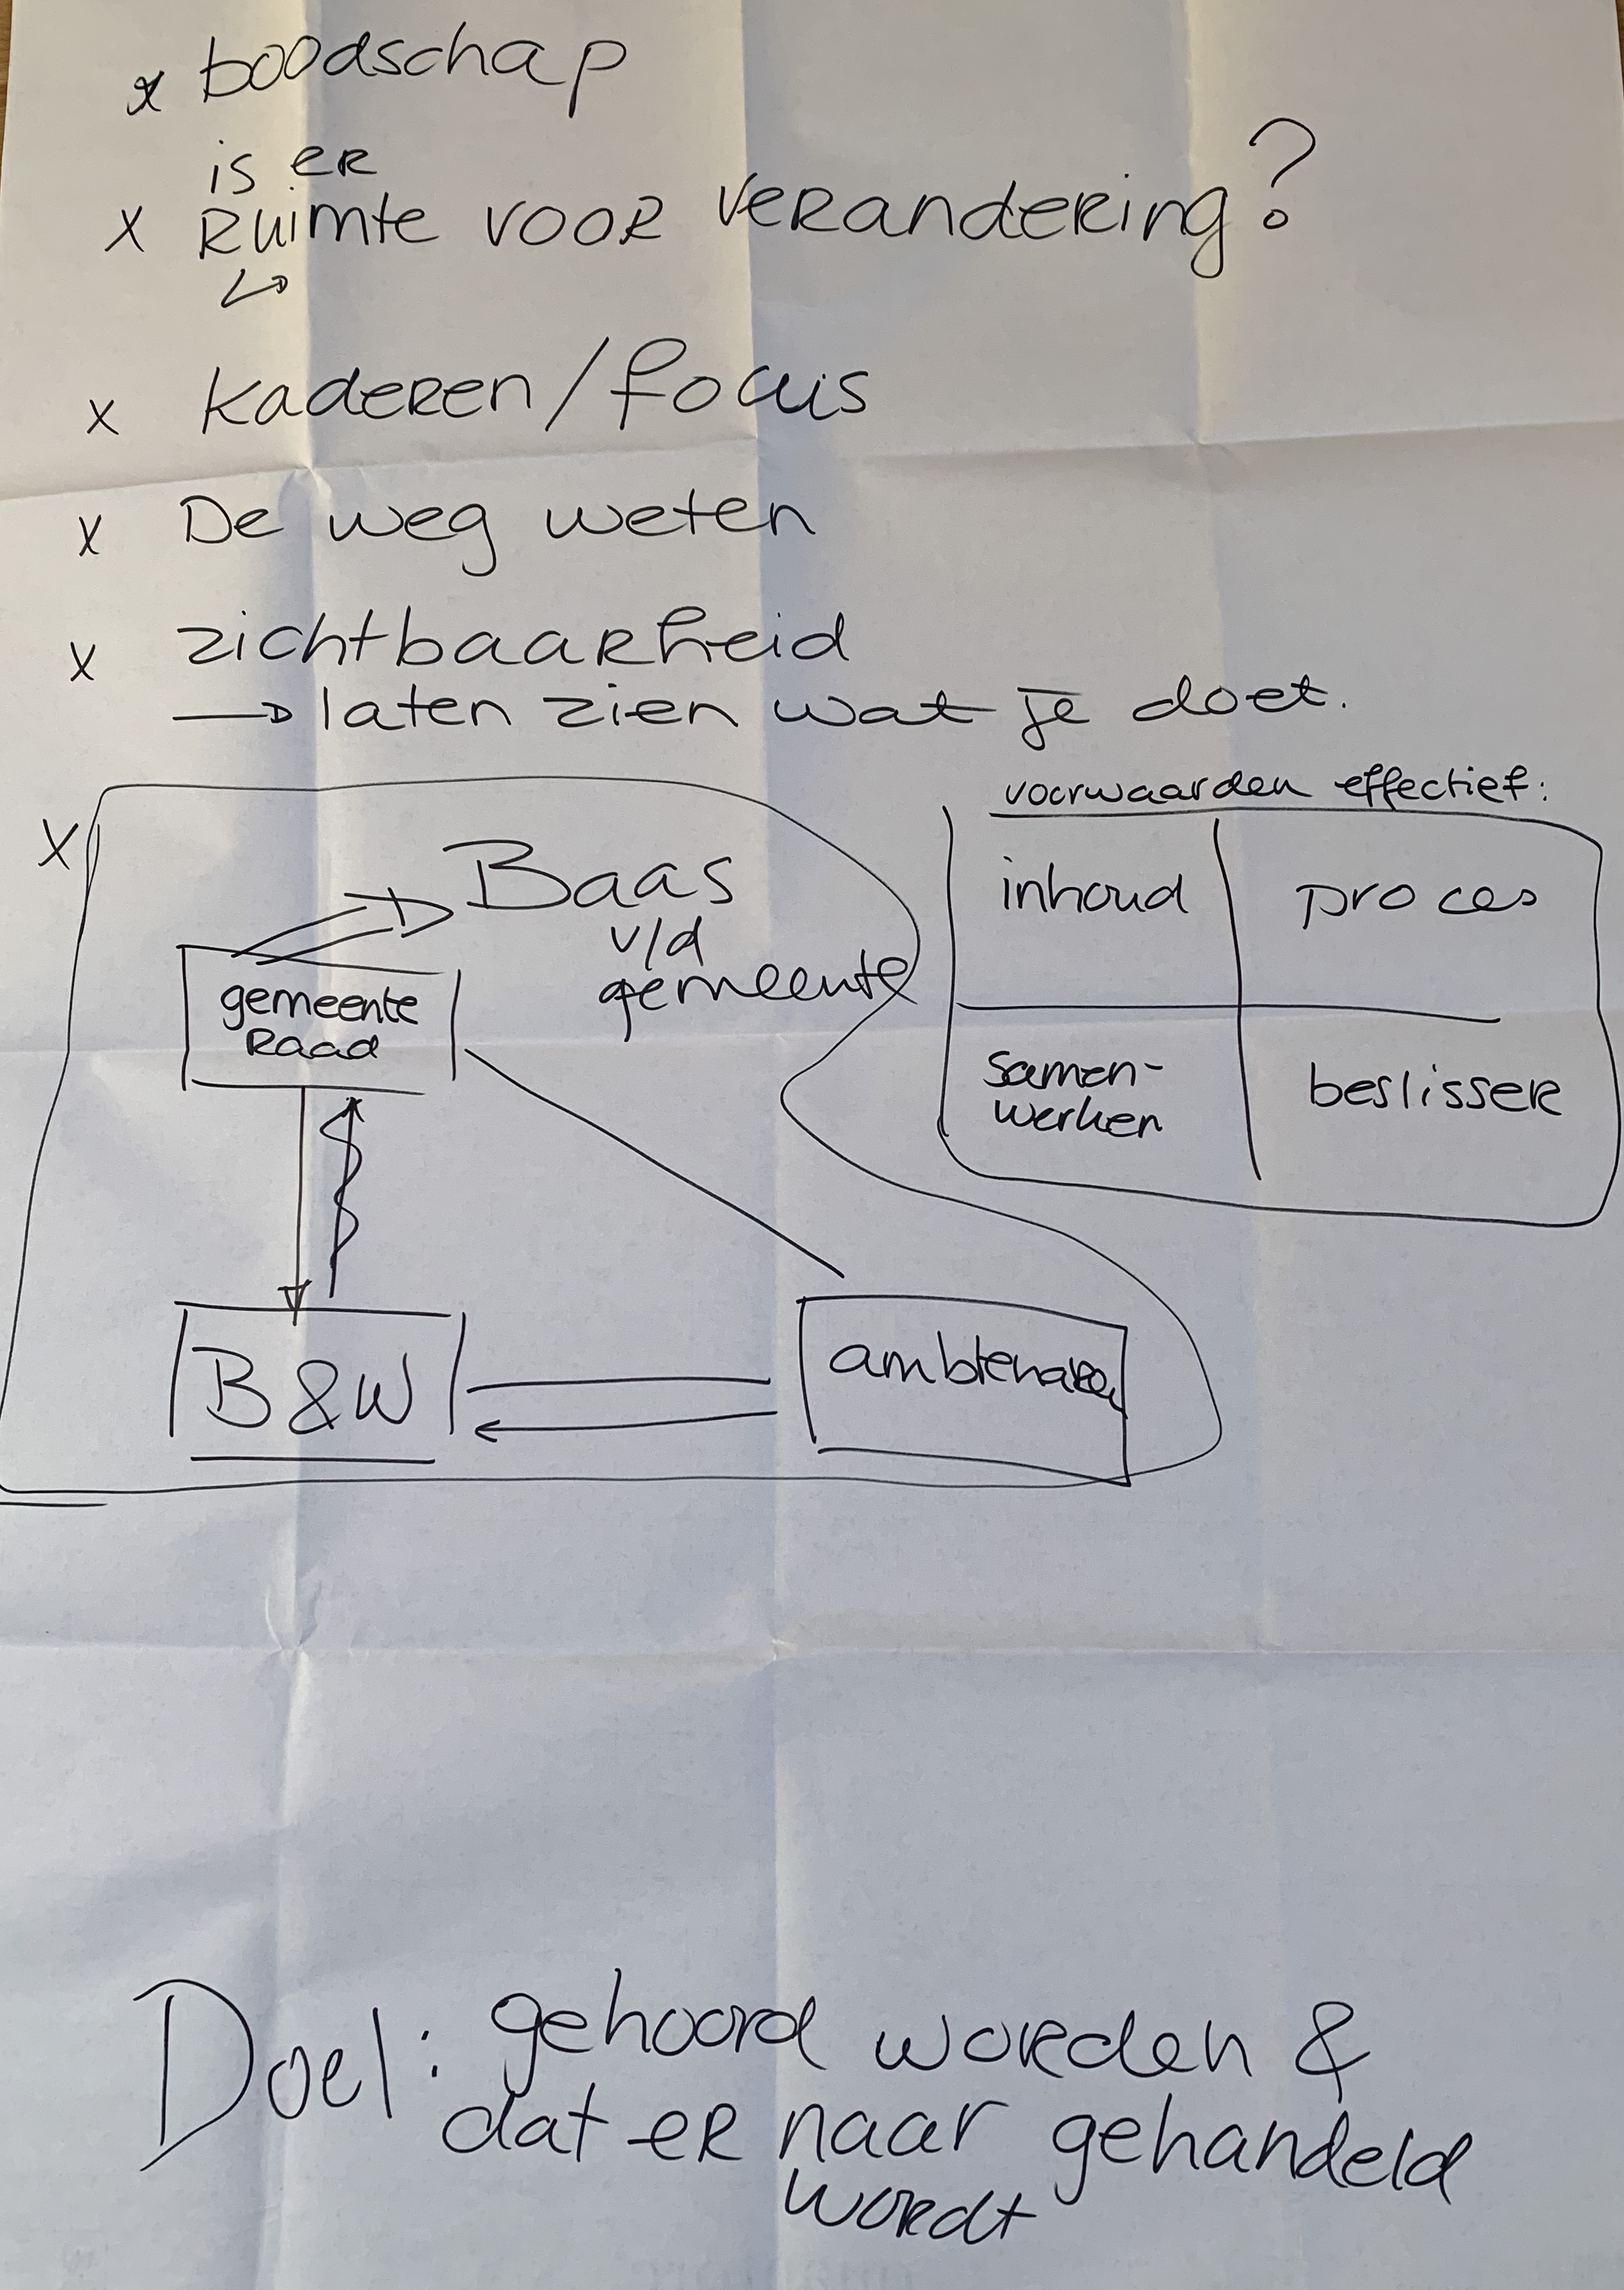 x boodschap
is er
x Ruimte voor verandering?
↳
x kaderen/focus
x De weg weten
x zichtbaarheid
→ laten zien wat je doet.
voorwaarden effectief:
inhoud
proces
samen-
werken
beslisser
x
Baas
v/d
gemeente
gemeente
Raad
B&W
ambtenaren
Doel: gehoord worden &
dat er naar gehandeld
wordt